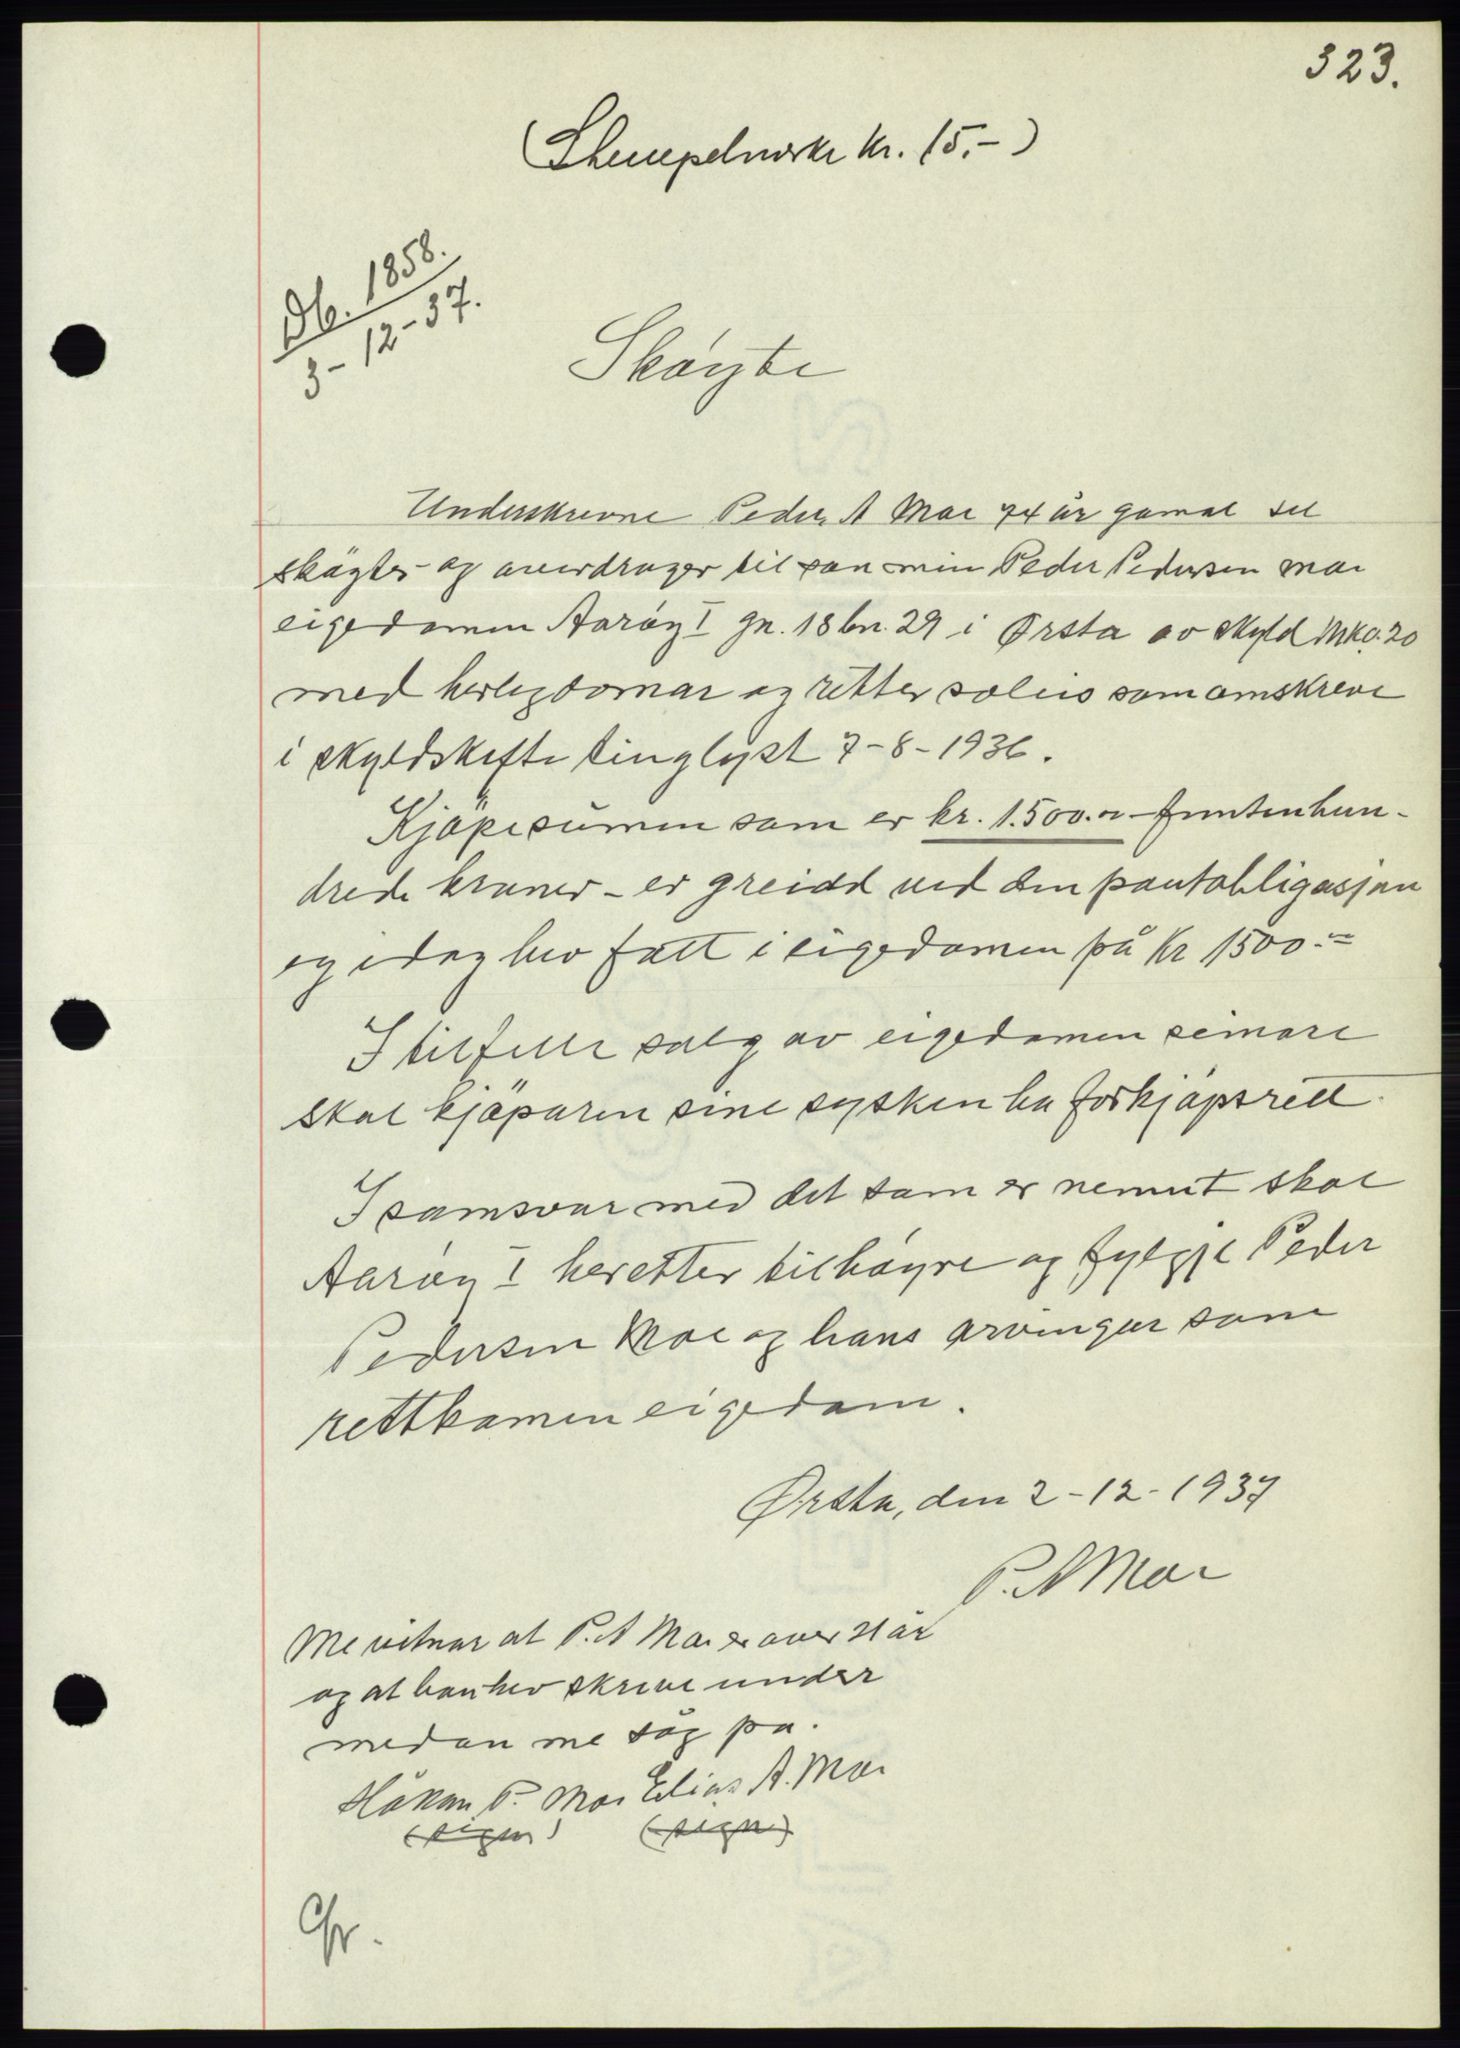 323.
(Stempelmerke kr. 15.-)
Db. 1858.
3-12-37.
Skøyte
Underskrevne Peder A Moe år gamal sel
skøyter og overdrager til son min Peder Pedersen Moe
eigedomen Aarøy I gn. 18 bn. 29 i Ørsta av skyld Mk 0.20
med herlegdomar og retter soleis som omskreve
i skyldskifte tinglyst 7-8-1936.
Kjøpesumen som er kr. 1.500.- femtenhun-
drede kroner - er greidd ved den pantobligasjon
eg idag hev fått i eigedomen på kr 1500.-
I tilfelle salg av eigedomen seinare
skal kjøparen sine sysken ha forkjøpsrett.
I samsvar med det som er nemnt skal
Aarøy I heretter tilhøyre og fylgje Peder
Pedersen Moe og hans arvingar som
rettkomen eigedom.
Ørsta, den 2-12-1937
P. A Moe
Me vitnar at P. A Moe er over 21 år
og at han hev skrive under
medan me såg på.
Håkon P. Moe Elias A. Moe
(sign) (sign)